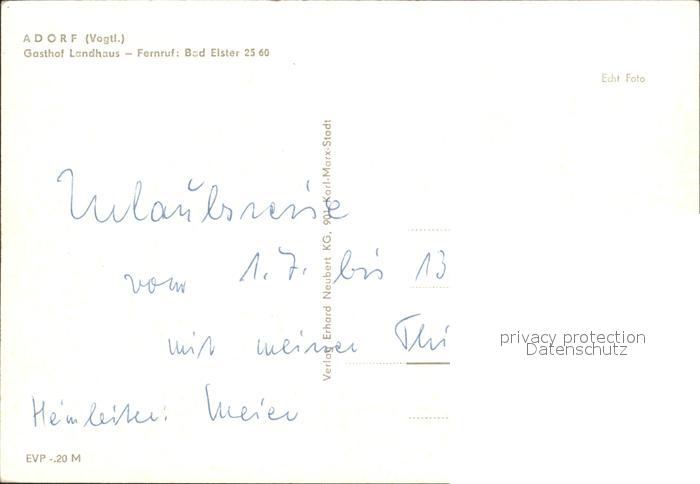 ADORF (Vogtl.)
Gasthof Landhaus – Fernruf: Bad Elster 25 60
Echt Foto
Verlag Erhard Neubert KG, 901 Karl-Marx-Stadt
Urlaubsreise
vom 1. 7. bis 13
mit meiner
Heimleiter: Meier
EVP -.20 M
privacy protection
Datenschutz